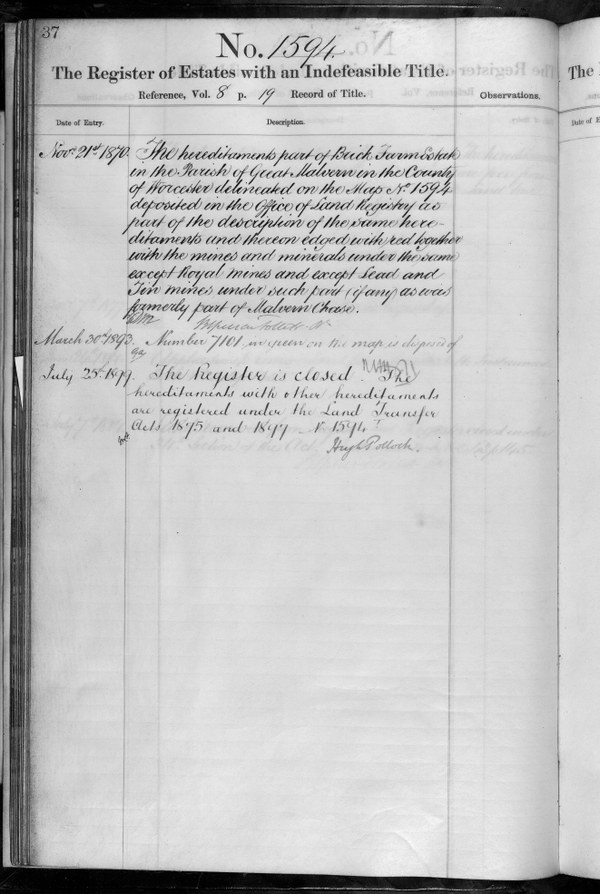 37
No. 1594.
The Register of Estates with an Indefeasible Title.
Reference, Vol. 8 p. 19 Record of Title.
Observations.
Date of Entry.
Description.
Novr. 21st 1870. The hereditaments part of Brick Farm Estate
in the Parish of Great Malvern in the County
of Worcester delineated on the Map No. 1594
deposited in the Office of Land Registry as
part of the description of the same here-
ditaments and thereon edged with red together
with the mines and minerals under the same
except Royal Mines and except Lead and
Tin mines under such part (if any) as was
formerly part of Malvern Chase.
March 30th 1893. Number 7101 in green on the map is disposed of
July 28th 1899. The Register is closed. The
hereditaments with other hereditaments
are registered under the Land Transfer
Acts 1875 and 1897 No 1594
Hugh Pollock.
The I
Date of E